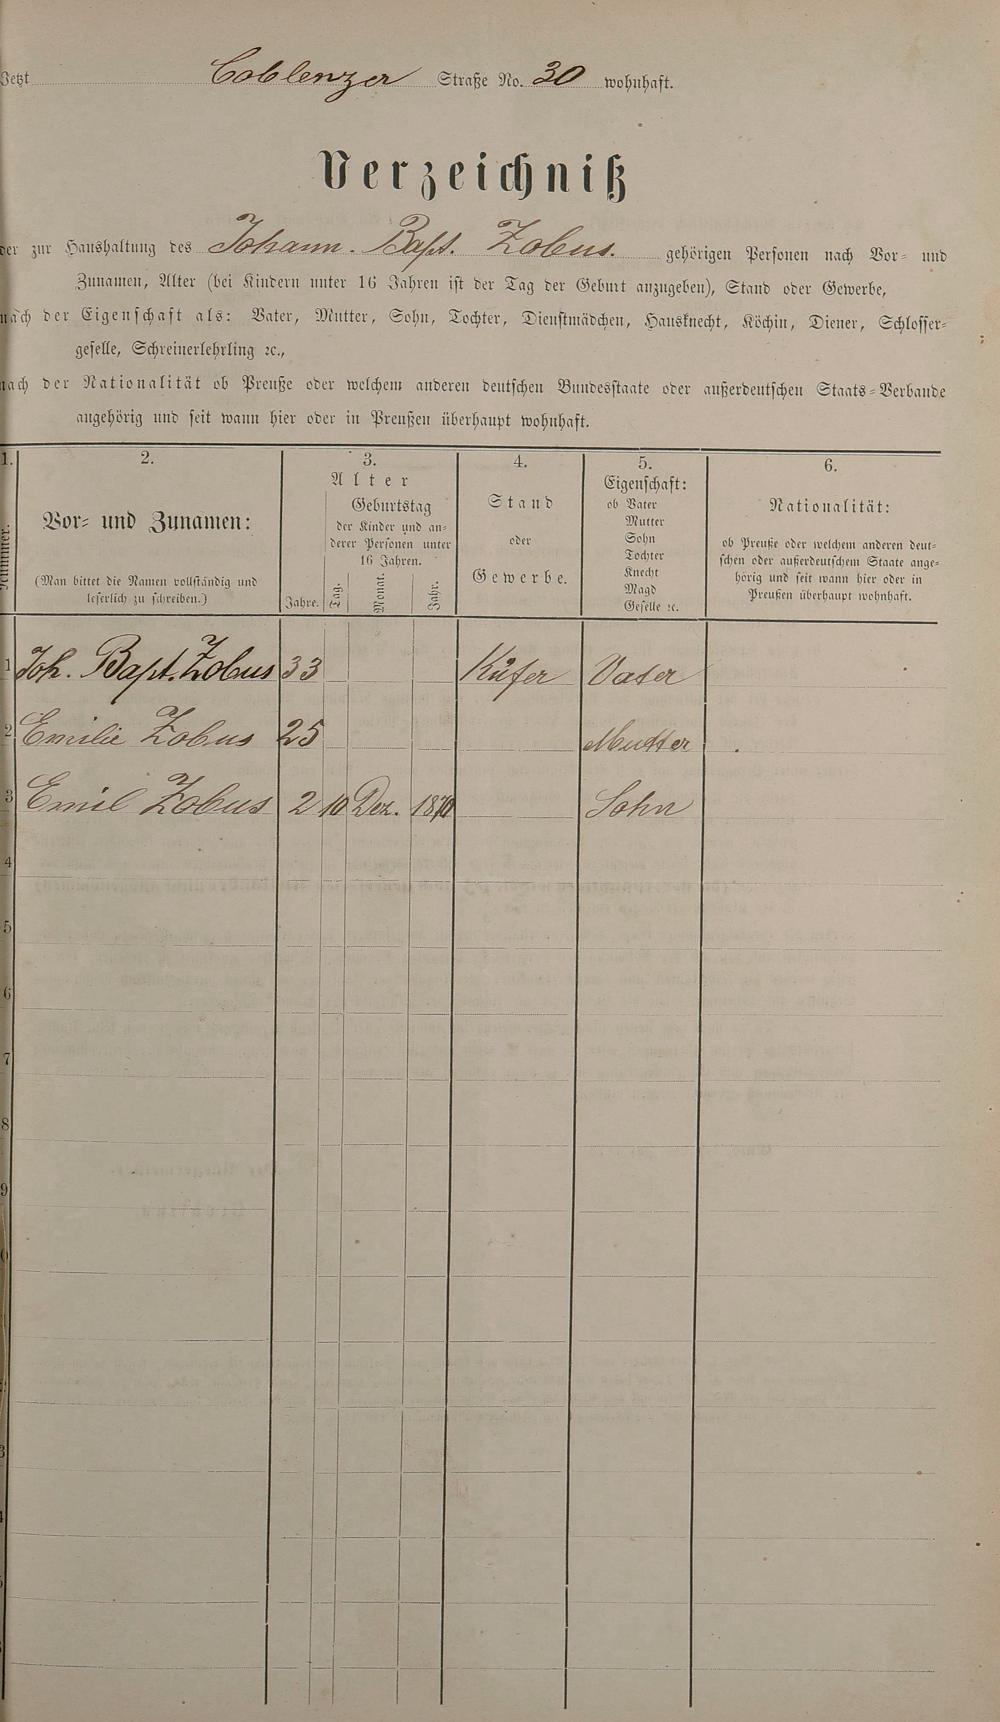 Jetzt Coblenzer Straße No. 30 wohnhaft.
Verzeichniß
der zur Haushaltung des Johann. Bapt. Zobus. gehörigen Personen nach Vor- und
Zunamen, Alter (bei Kindern unter 16 Jahren ist der Tag der Geburt anzugeben), Stand oder Gewerbe,
nach der Eigenschaft als: Vater, Mutter, Sohn, Tochter, Dienstmädchen, Hausknecht, Köchin, Diener, Schlosser-
geselle, Schreinerlehrling ꝛc.,
nach der Nationalität ob Preuße oder welchem anderen deutschen Bundesstaate oder außerdeutschen Staats-Verbande
angehörig und seit wann hier oder in Preußen überhaupt wohnhaft.
1. 2. 3. 4. 5. 6.
Nummer.
Vor- und Zunamen:
(Man bittet die Namen vollständig und
leserlich zu schreiben.)
Alter
Jahre.
Geburtstag
der Kinder und an-
derer Personen unter
16 Jahren.
Tag. Monat. Jahr.
Stand
oder
Gewerbe.
Eigenschaft:
ob Vater
Mutter
Sohn
Tochter
Knecht
Magd
Geselle ꝛc.
Nationalität:
ob Preuße oder welchem anderen deut-
schen oder außerdeutschem Staate ange-
hörig und seit wann hier oder in
Preußen überhaupt wohnhaft.
1 Joh. Bapt. Zobus 33 Küfer Vater
2 Emilie Zobus 25 Mutter
3 Emil Zobus 2 10 Dez. 1870 Sohn
4
5
6
7
8
9